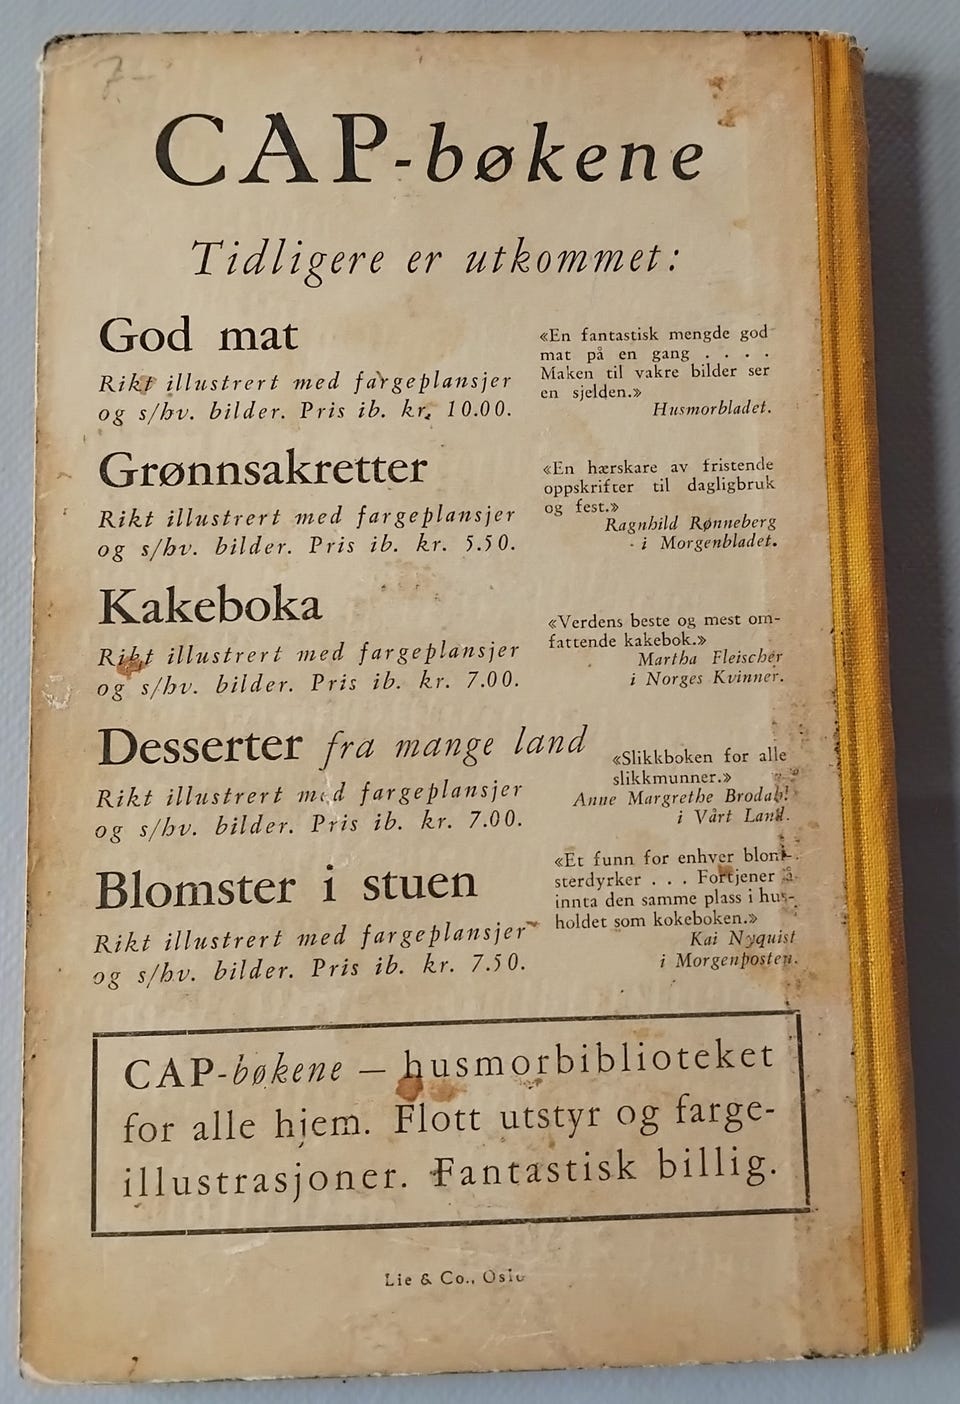 7-
CAP-bøkene
Tidligere er utkommet:
God mat
Rikt illustrert med fargeplansjer
og s/hv. bilder. Pris ib. kr. 10.00.
«En fantastisk mengde god
mat på en gang . . . .
Maken til vakre bilder ser
en sjelden.»
Husmorbladet.
Grønnsakretter
Rikt illustrert med fargeplansjer
og s/hv. bilder. Pris ib. kr. 5.50.
«En hærskare av fristende
oppskrifter til dagligbruk
og fest.»
Ragnhild Rønneberg
i Morgenbladet.
Kakeboka
Rikt illustrert med fargeplansjer
og s/hv. bilder. Pris ib. kr. 7.00.
«Verdens beste og mest om-
fattende kakebok.»
Martha Fleischer
i Norges Kvinner.
Desserter fra mange land
Rikt illustrert med fargeplansjer
og s/hv. bilder. Pris ib. kr. 7.00.
«Slikkboken for alle
slikkmunner.»
Anne Margrethe Brodahl
i Vårt Land.
Blomster i stuen
Rikt illustrert med fargeplansjer
og s/hv. bilder. Pris ib. kr. 7.50.
«Et funn for enhver blom-
sterdyrker . . . Fortjener å
innta den samme plass i hus-
holdet som kokeboken.»
Kai Nyquist
i Morgenposten.
CAP-bøkene — husmorbiblioteket
for alle hjem. Flott utstyr og farge-
illustrasjoner. Fantastisk billig.
Lie & Co., Oslo